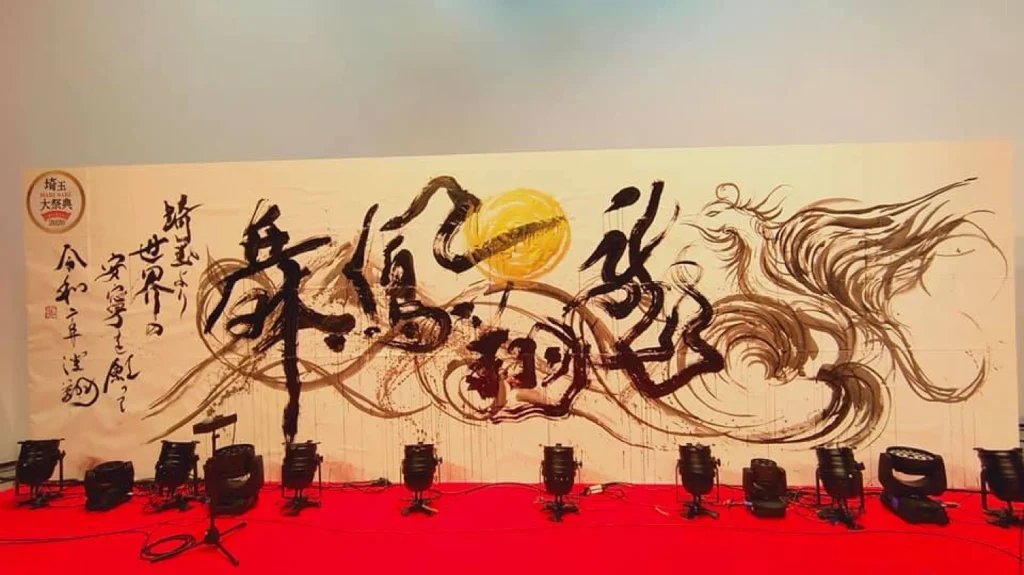 龍翔鳳舞
埼玉より
世界の
安寧を願って
令和二年
埼玉
WABI SABI
大祭典
2020